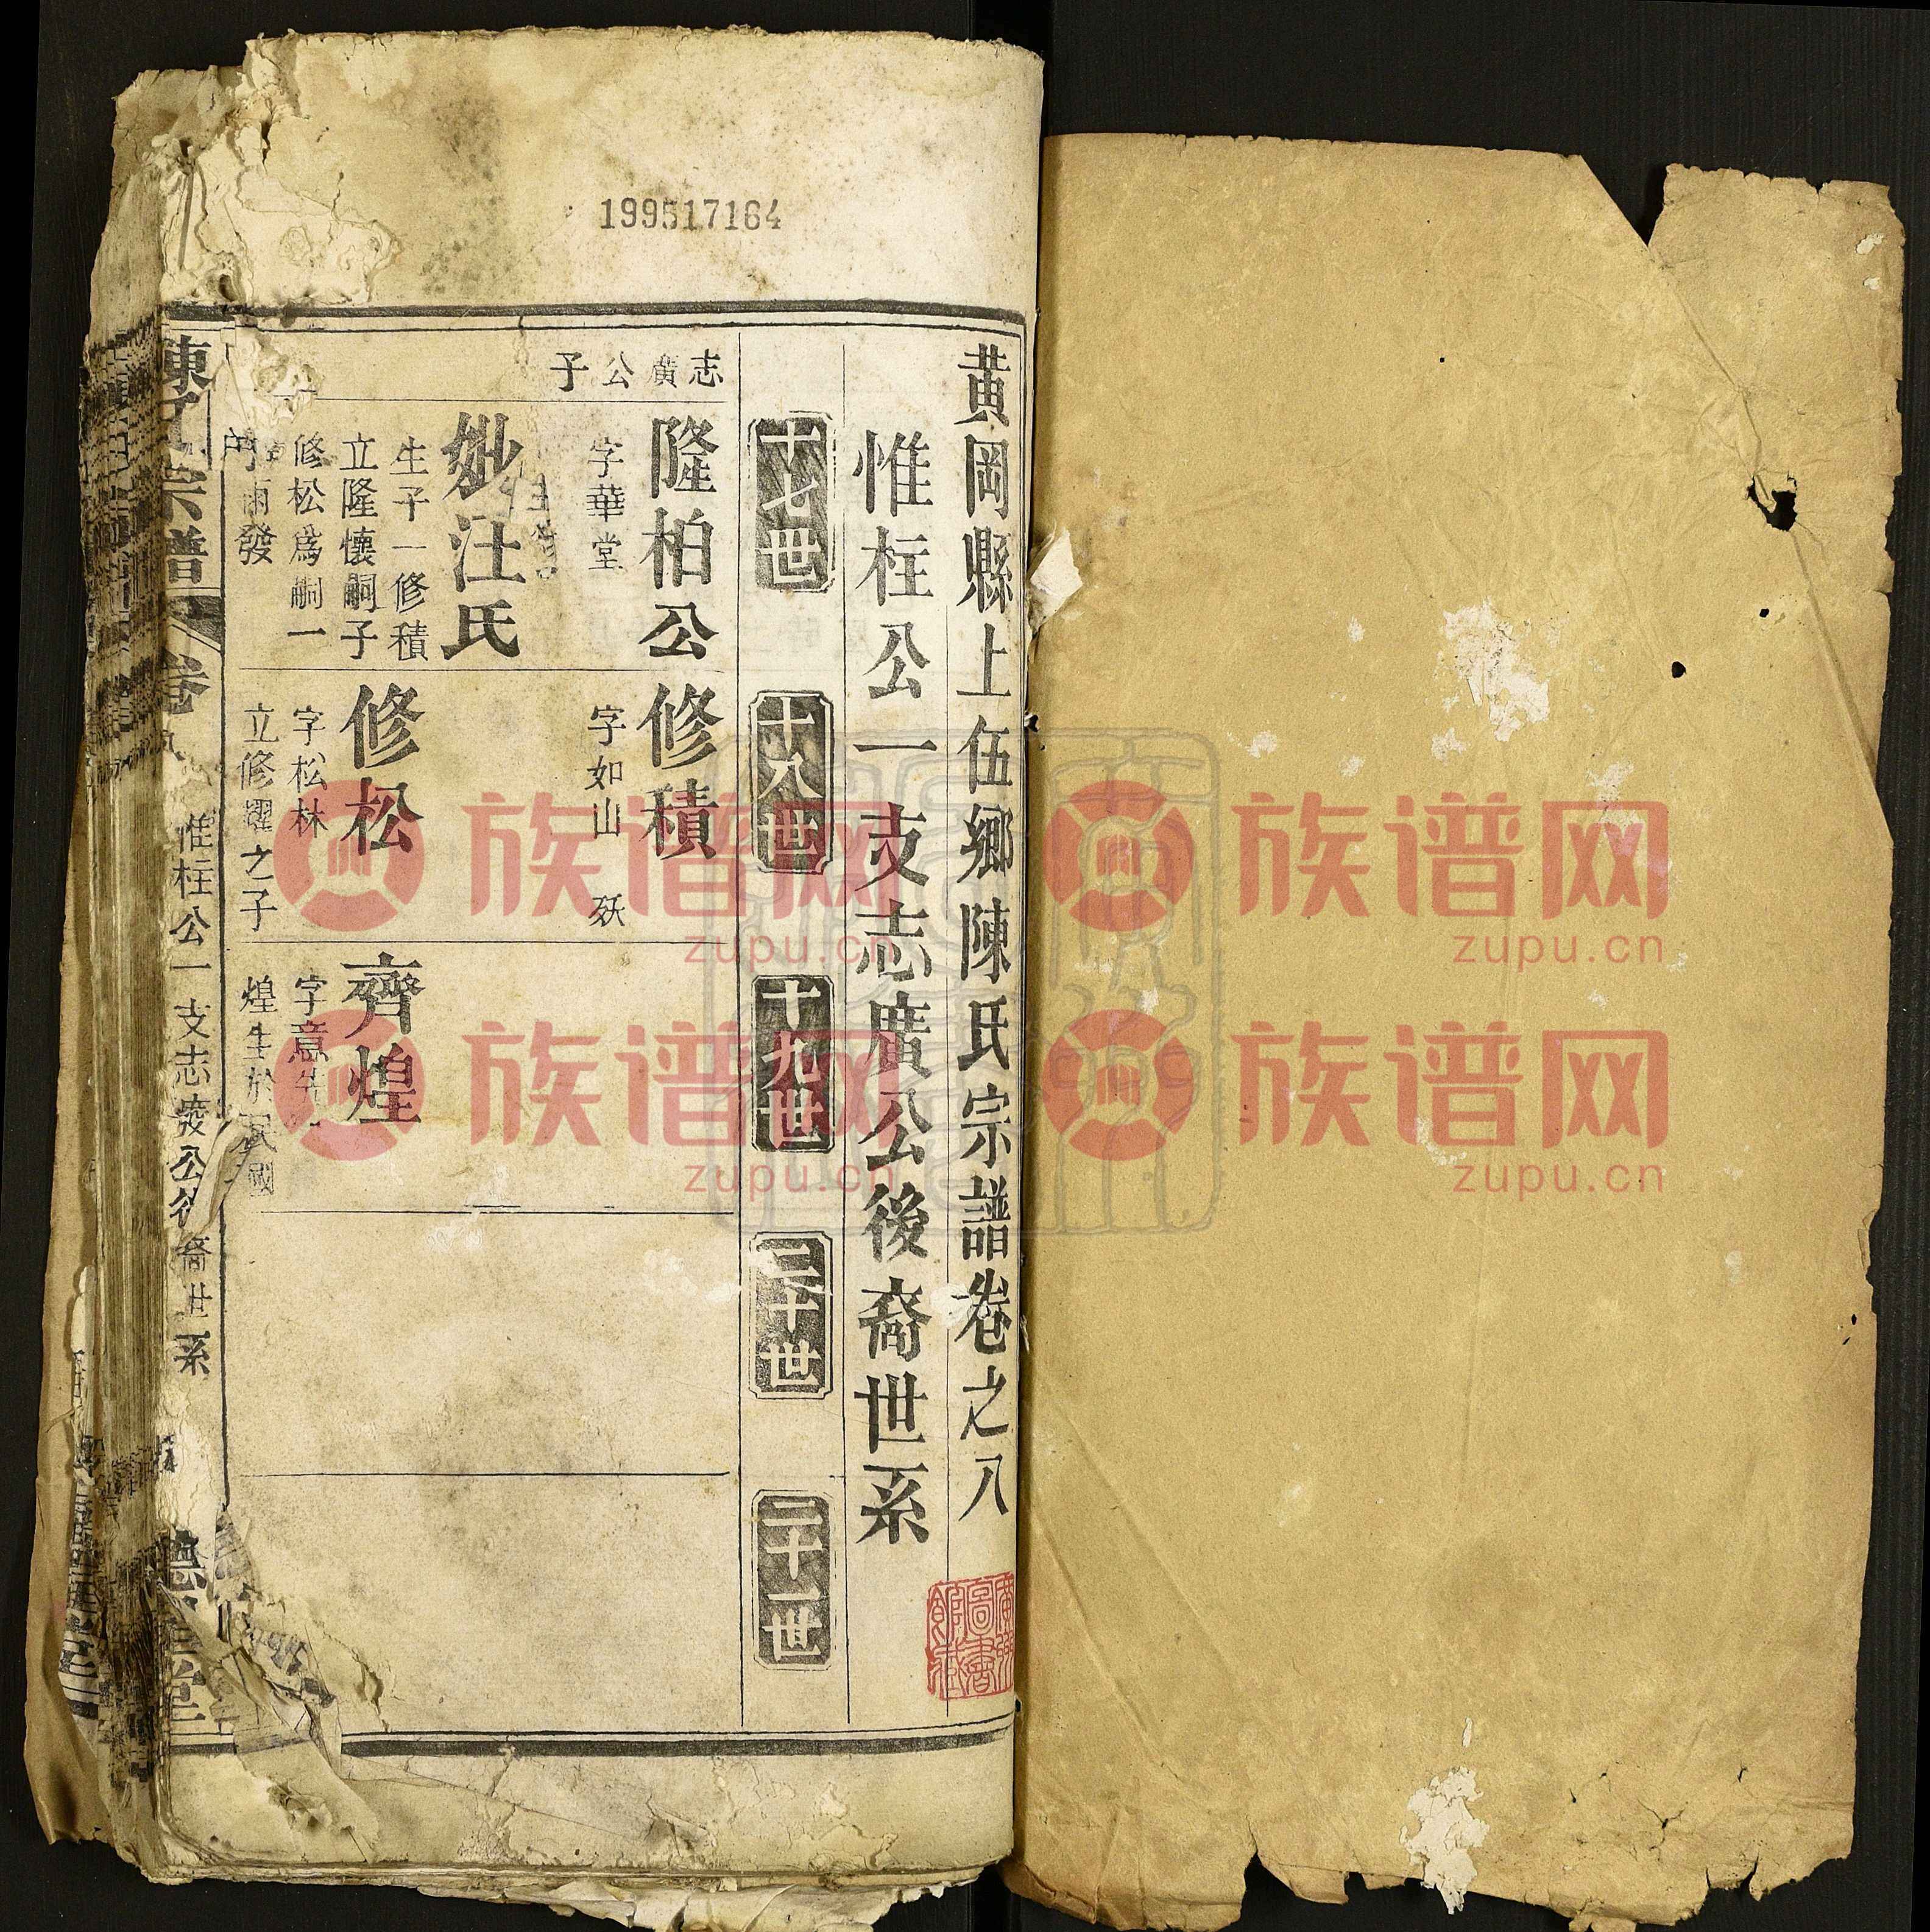 199517164
黃岡縣上伍鄉陳氏宗譜卷之八
惟柱公一支志廣公後裔世系
十七世
十八世
十九世
二十世
二十一世
志廣公子
隆柏公
字華堂
妣汪氏
生子一修積
立隆懷嗣子
修松爲嗣一
雨發
修積
字如山 殀
修松
字松林
立修耀之子
齊煌
字意
煌生於民國
陳氏宗譜
卷
惟柱公一支志 公 裔世系
堂
族谱网
zupu.cn
族谱网
zupu.cn
族谱网
zupu.cn
族谱网
zupu.cn